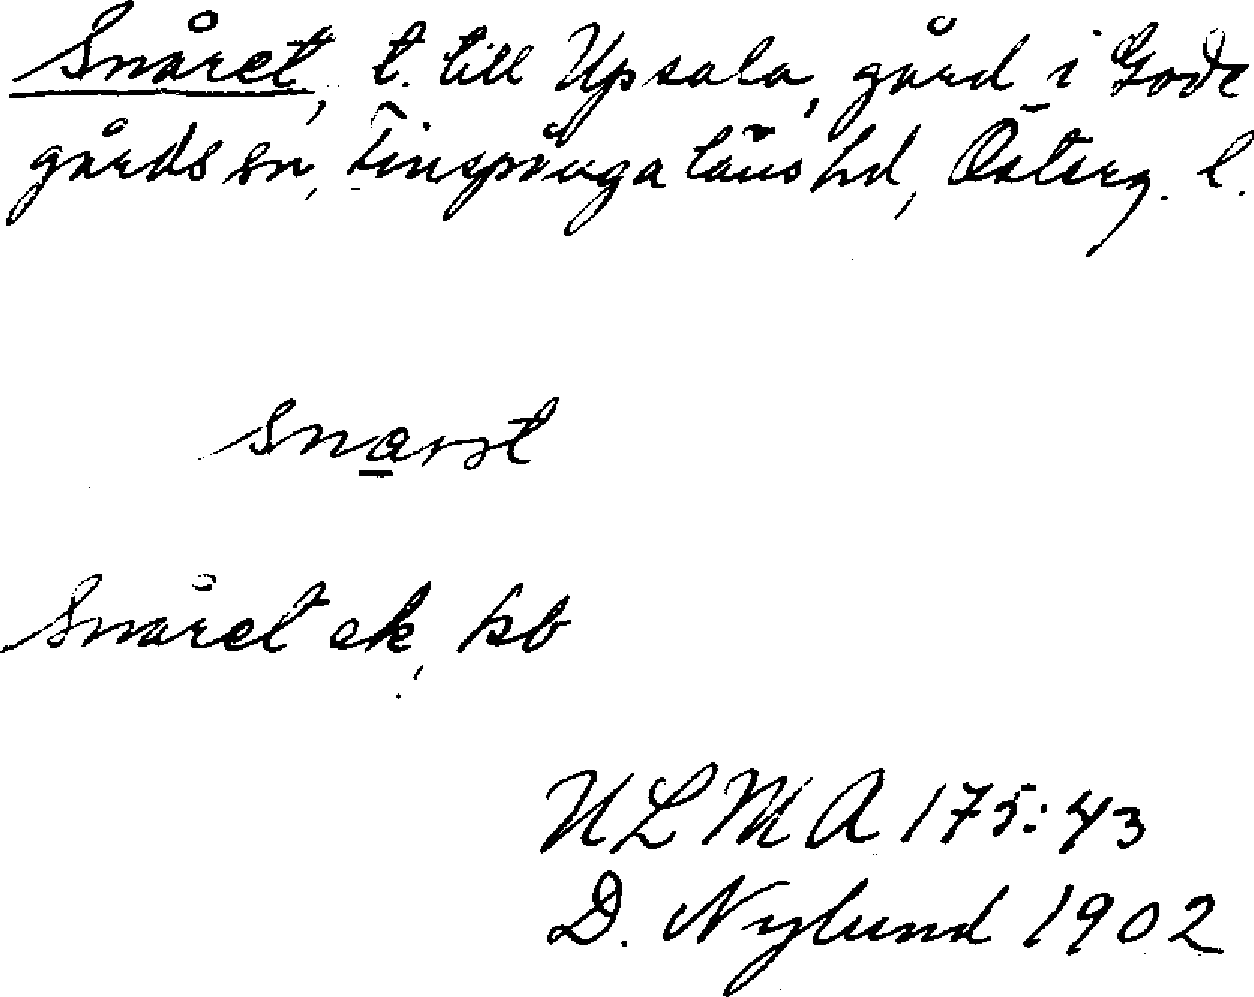 Snåret, t. till Upsala, gård i Gode
gårds sn, Finspånga läns hd, Österg. l.
Snåret ek, hb
ULMA 175:43
D. Nylund 1902